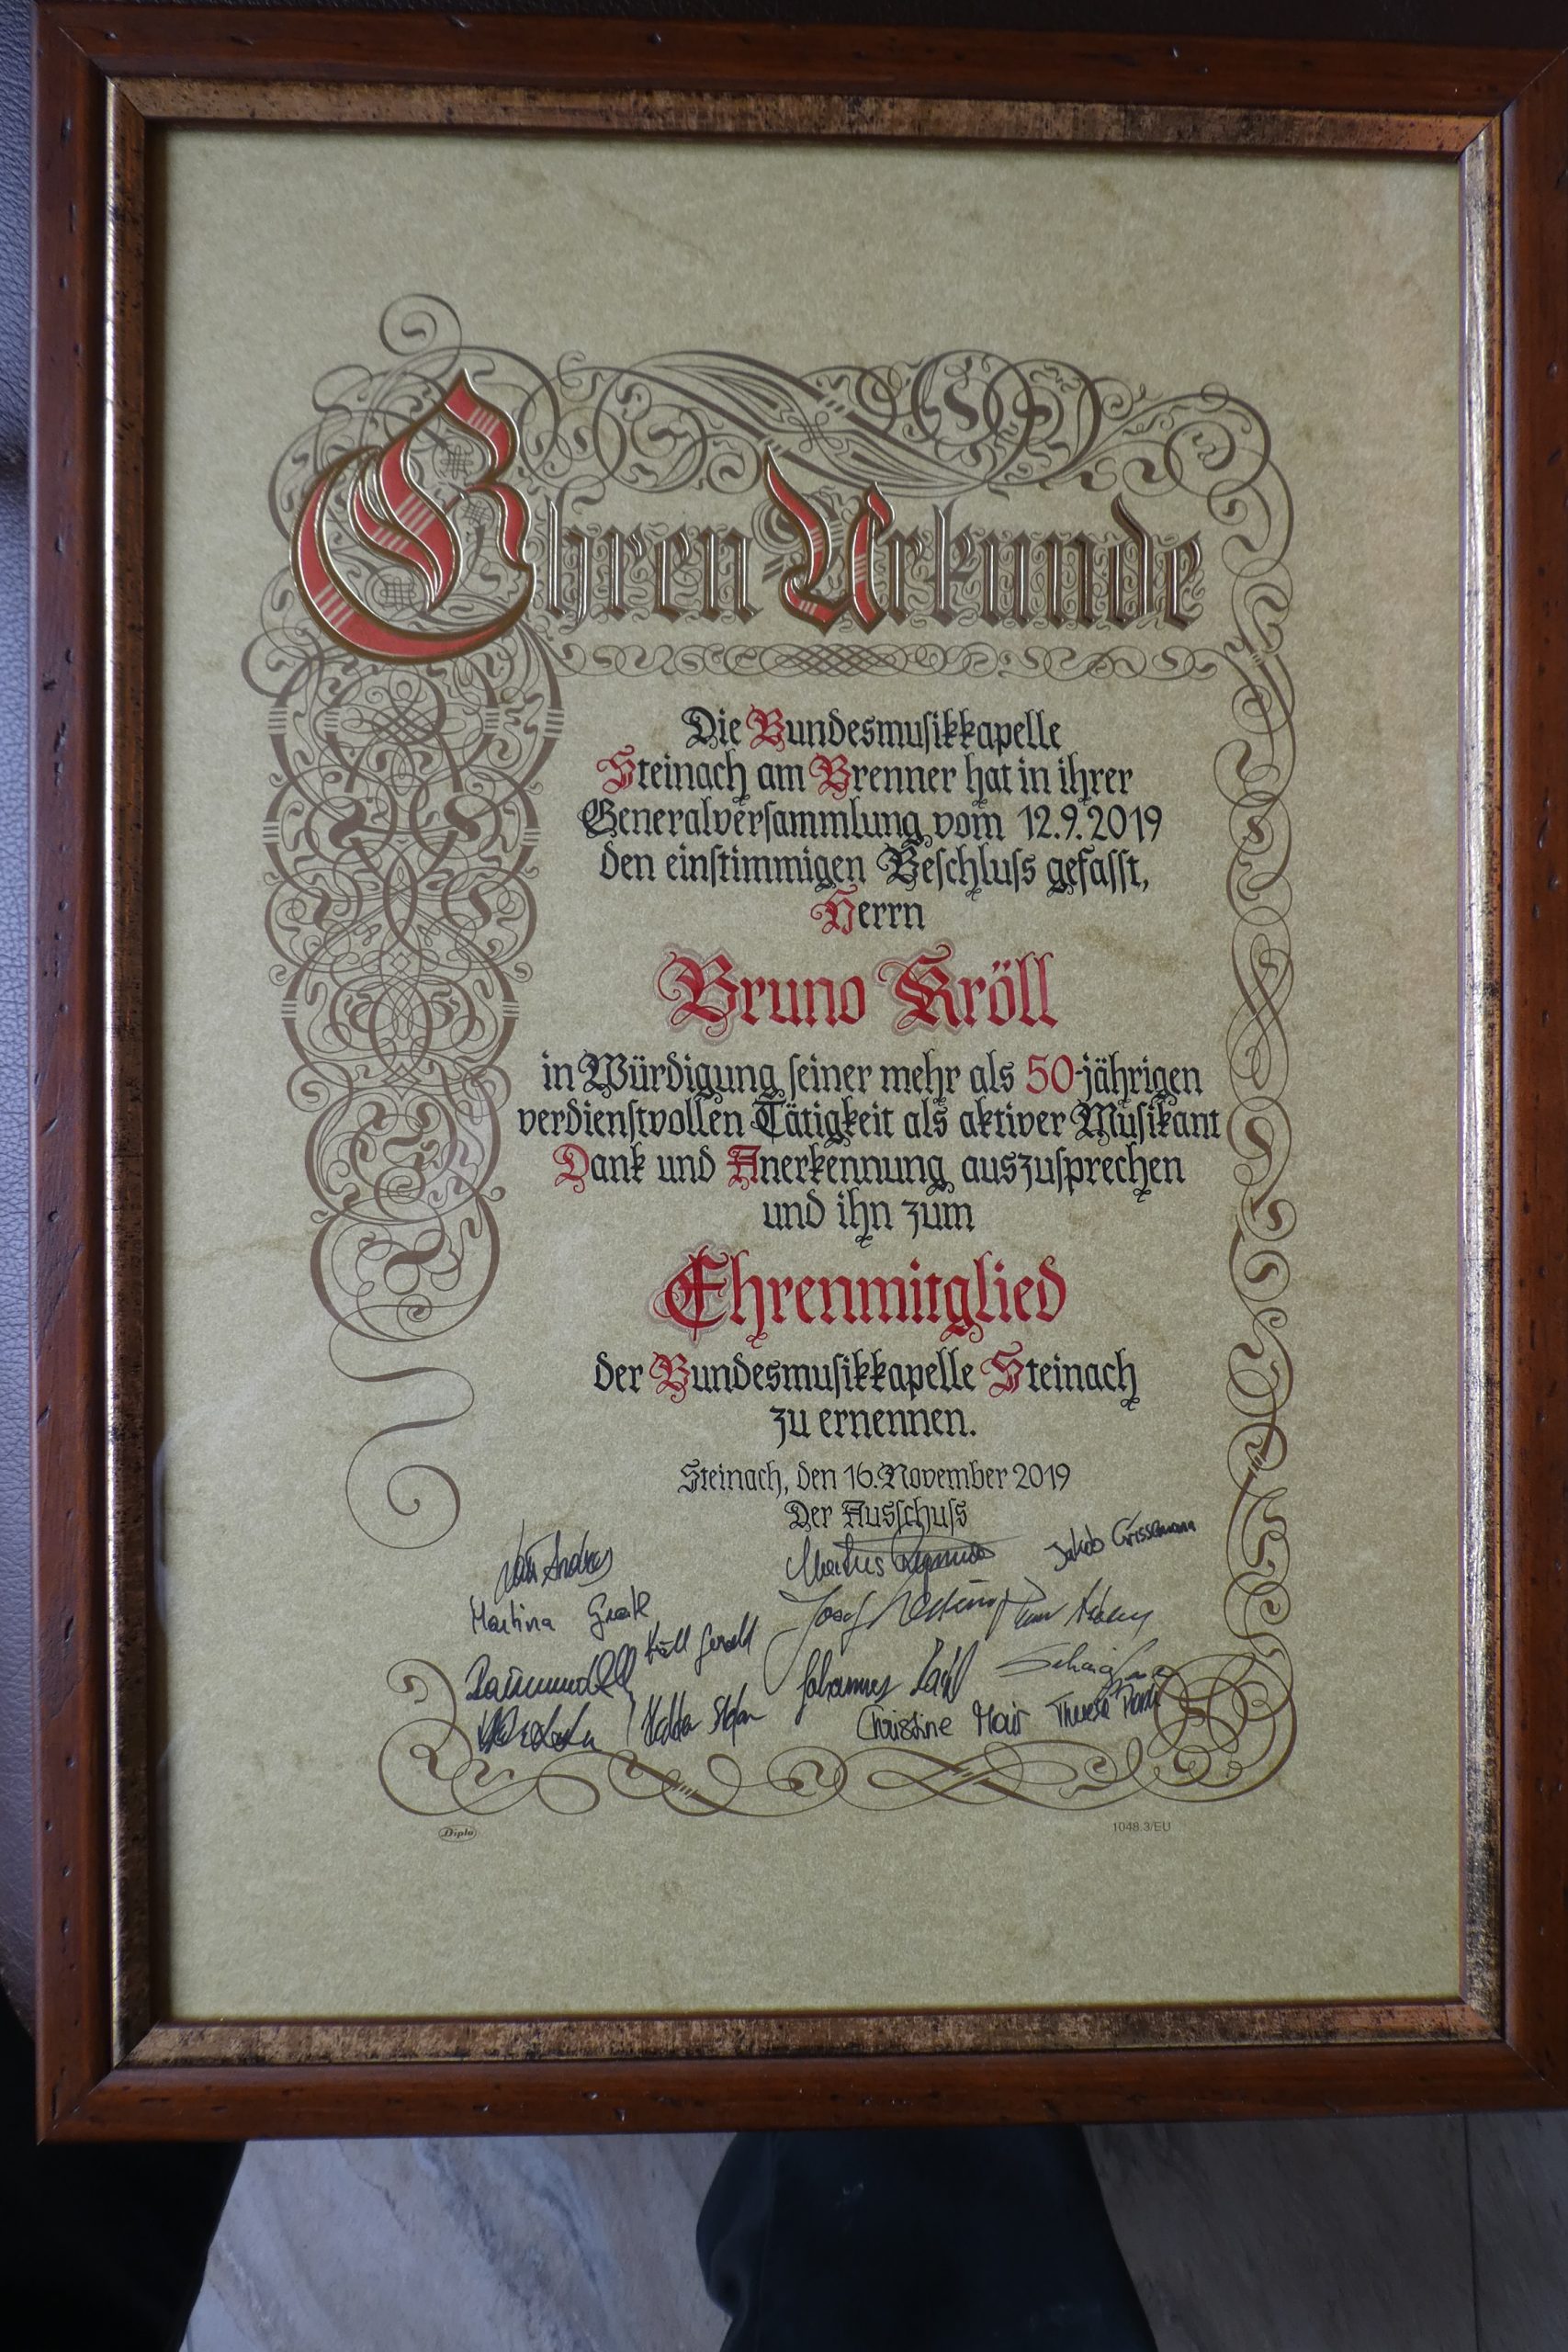 Ehren Urkunde
Die Bundesmusikkapelle
Steinach am Brenner hat in ihrer
Generalversammlung vom 12.9.2019
den einstimmigen Beschluss gefasst,
Herrn
Bruno Kröll
in Würdigung seiner mehr als 50-jährigen
verdienstvollen Tätigkeit als aktiver Musikant
Dank und Anerkennung auszusprechen
und ihn zum
Ehrenmitglied
der Bundesmusikkapelle Steinach
zu ernennen.
Steinach, den 16. November 2019
Der Ausschuss
Jakob Grissemann
Martina
Josef
Gerald
Raimund
Johannes
Christine Mair
Diplo
1048.3/EU